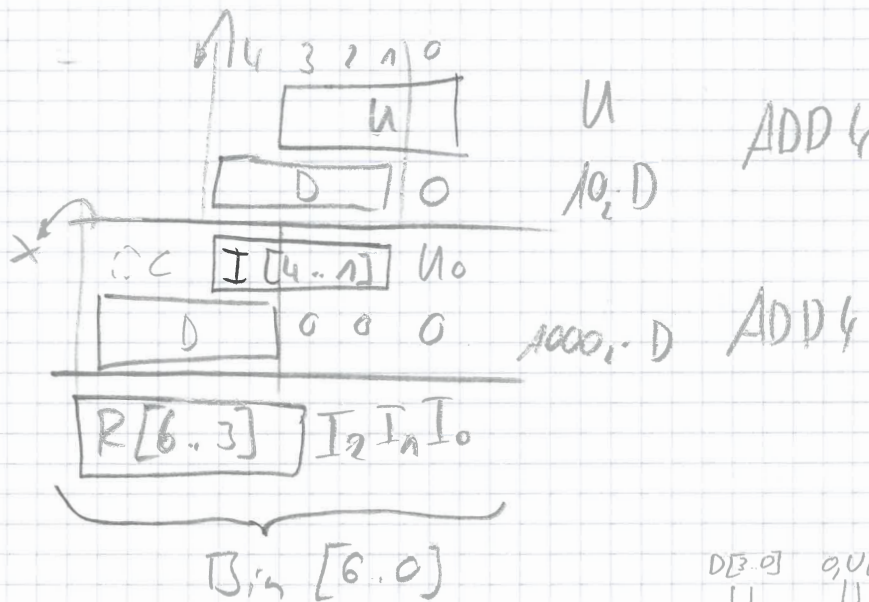 4 3 2 1 0
U U ADD 4
D 0 10₂·D
X C I [4..1] U₀
D 0 0 0 1000₂·D ADD 4
R[6..3] I₂ I₁ I₀
Bin [6..0]
D[3..0] 0,U